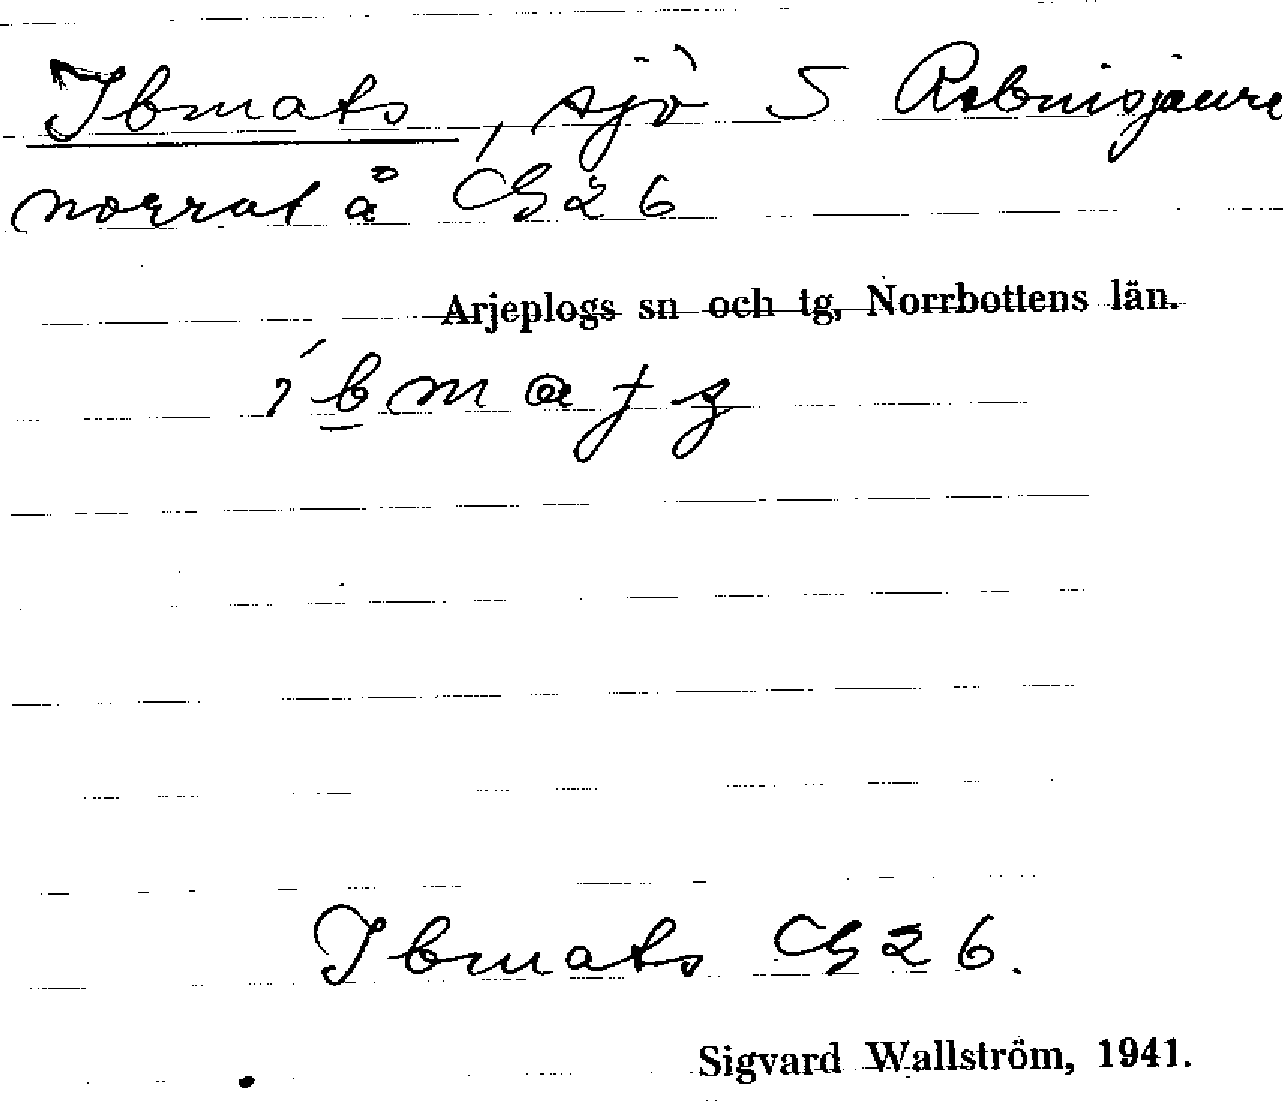 Ibmats, sjö S Rebnisjaure
norrut å Gb 26
Arjeplogs sn och tg, Norrbottens län.
íbmats
Ibmats Gb 26.
Sigvard Wallström, 1941.